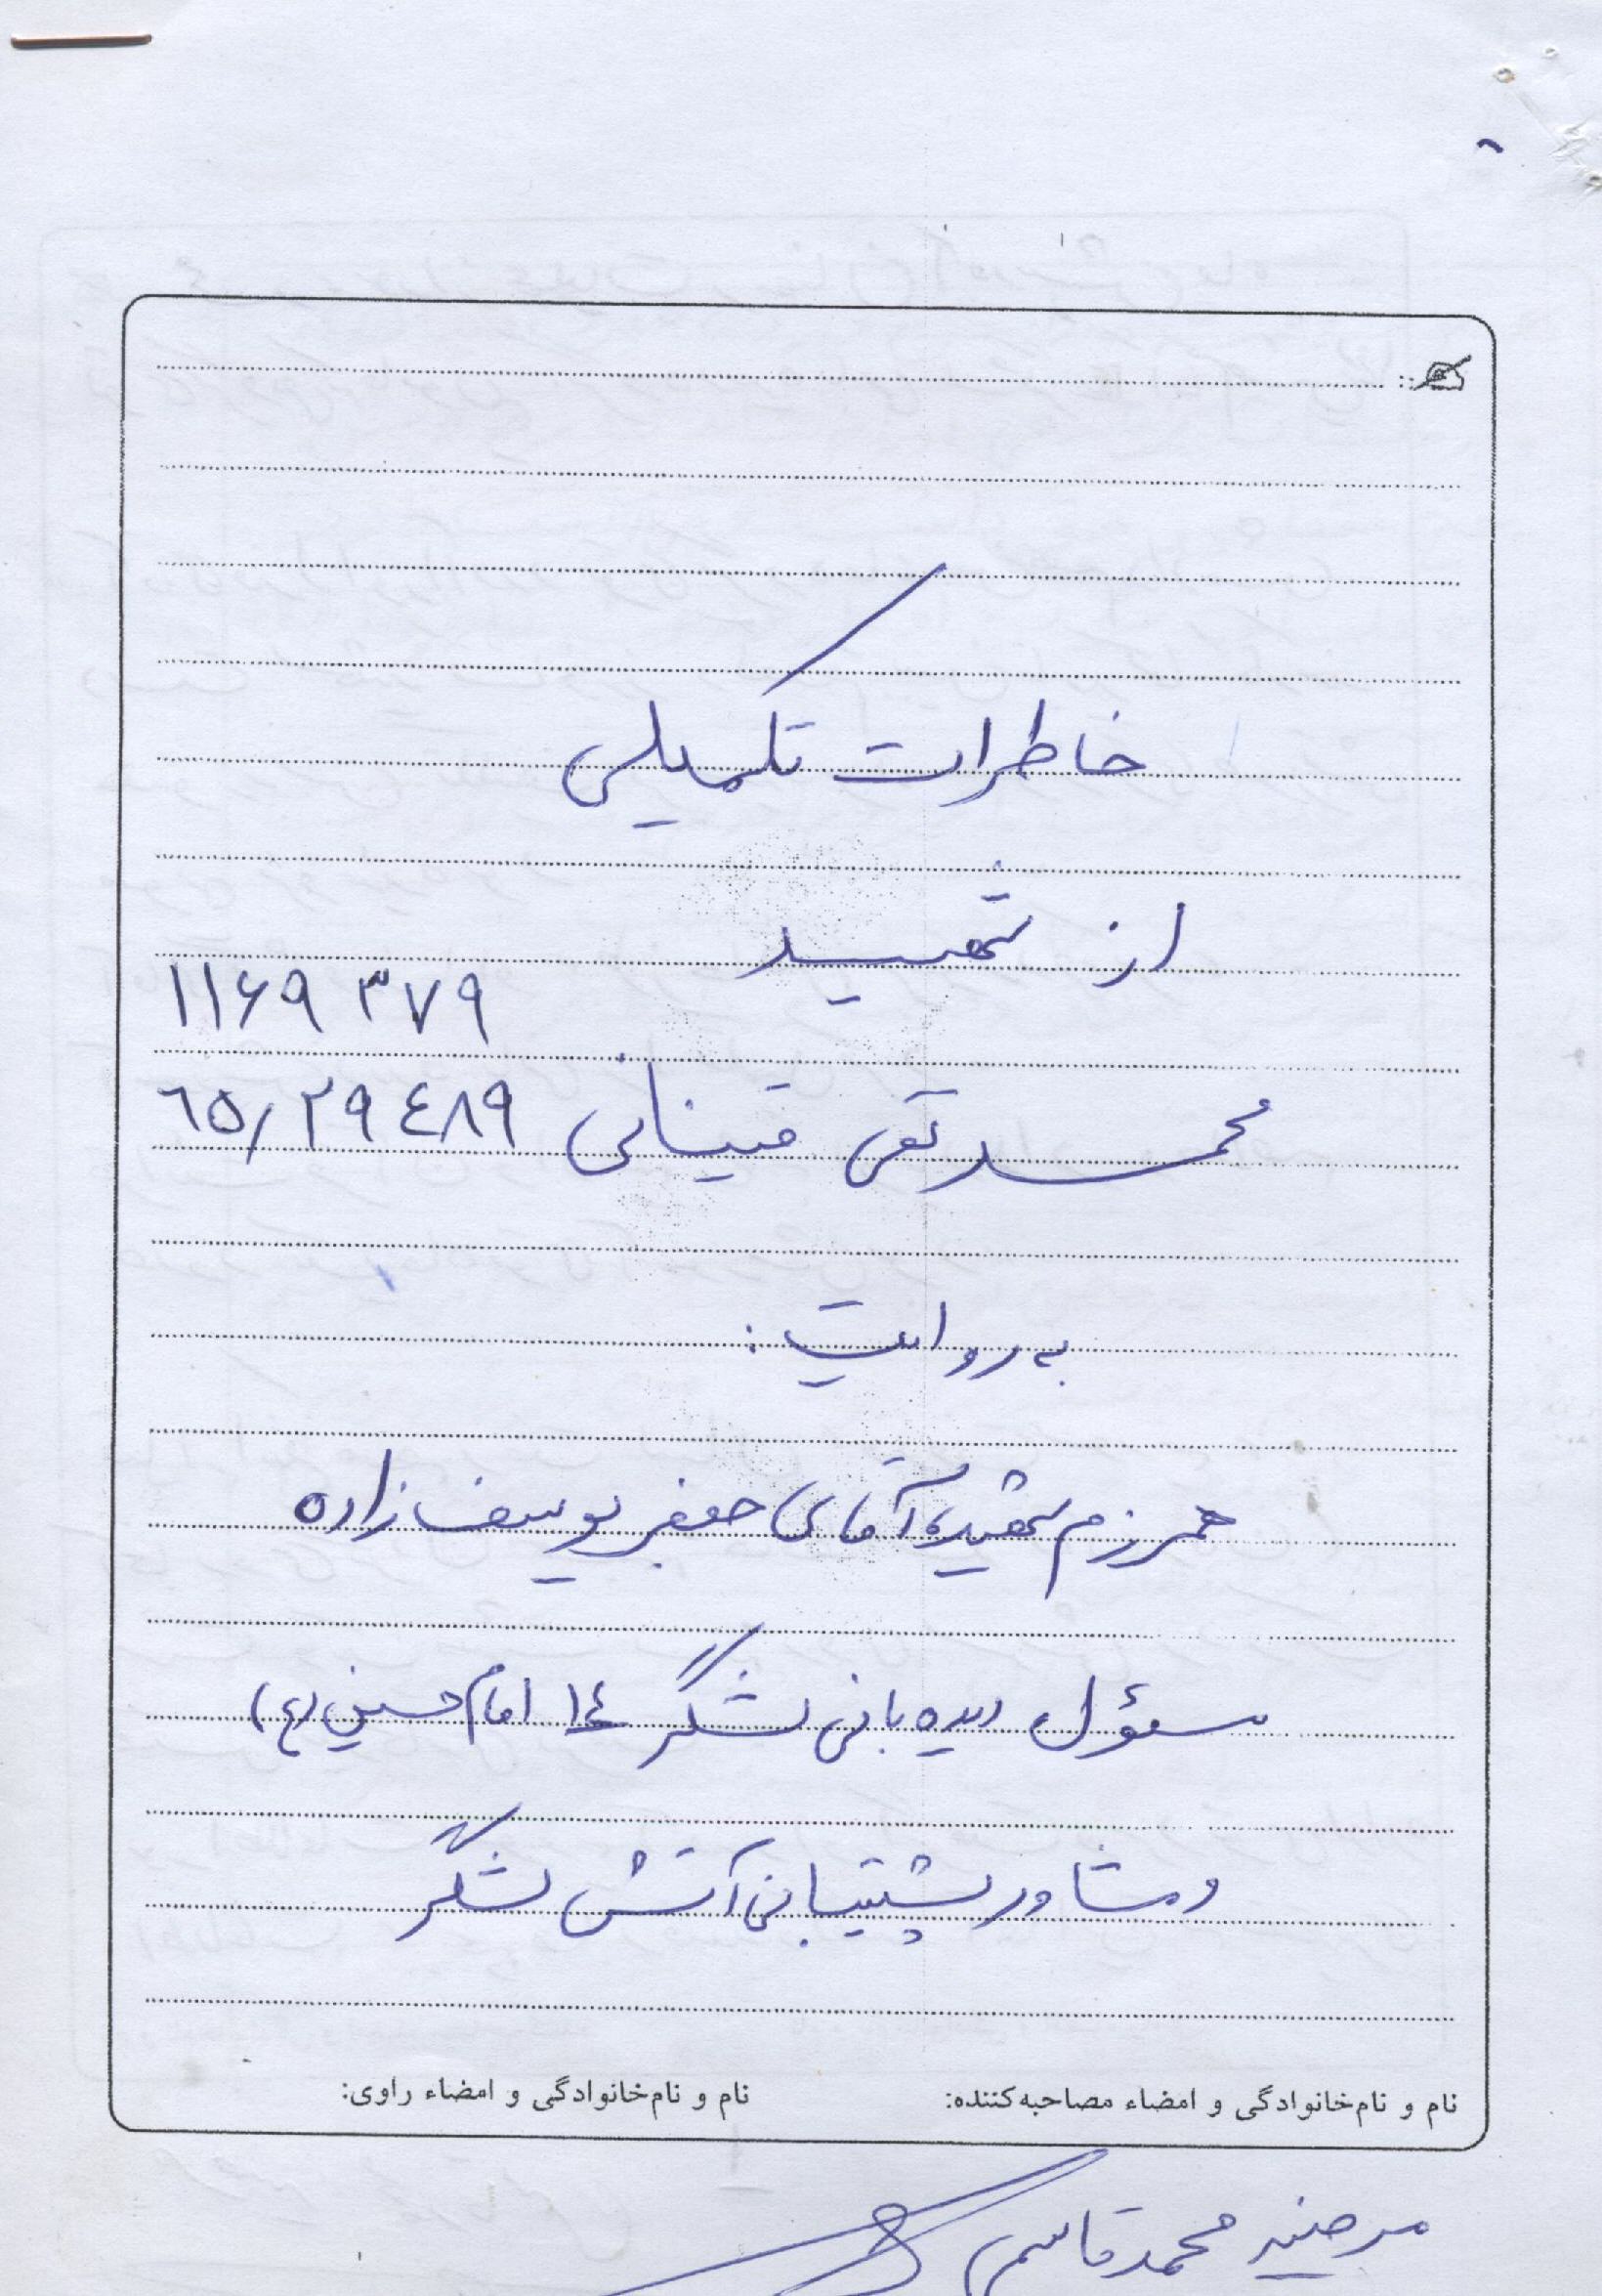 خاطرات تکمیلی
از شهید
۱۱۶۹۳۷۹
محمدتقی قینانی ٦٥/۲۹٤۸۹
به روایت:
همرزم شهید، آقای جعفر یوسف زاده
مسؤل دیده بانی لشگر ١٤ امام حسین (ع)
و مشاور پشتیبانی آتش لشگر
نام و نام‌خانوادگی و امضاء مصاحبه‌کننده: نام و نام‌خانوادگی و امضاء راوی:
مرضیه محمدقاسمی